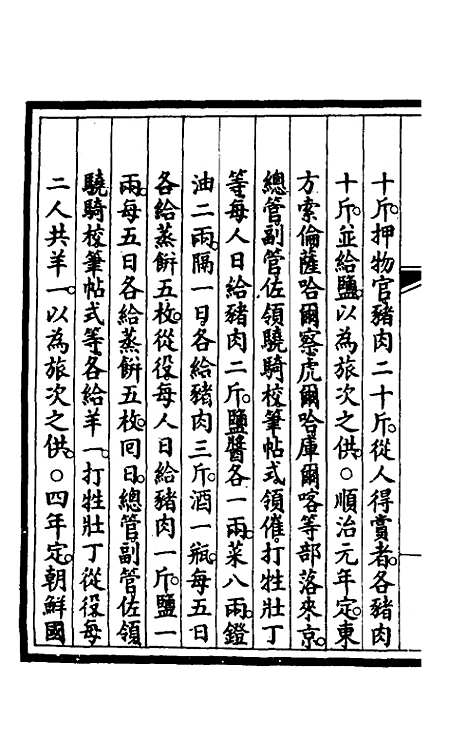 十斤。押物官豬肉二十斤。從人得賞者。各豬肉
十斤。並給鹽。以為旅次之供。○順治元年定。東
方索倫薩哈爾察虎爾哈庫爾喀等部落來京。
總管副管佐領驍騎校筆帖式領催。打牲壯丁
等每人日給豬肉二斤。鹽醬各一兩。菜八兩。鐙
油二兩。隔一日各給豬肉三斤。酒一瓶。每五日
各給蒸餅五枚。從役每人日給豬肉一斤。鹽一
兩。每五日各給蒸餅五枚。回日。總管副管佐領
驍騎校筆帖式等各給羊一。打牲壯丁從役每
二人共羊一。以為旅次之供。○四年定。朝鮮國